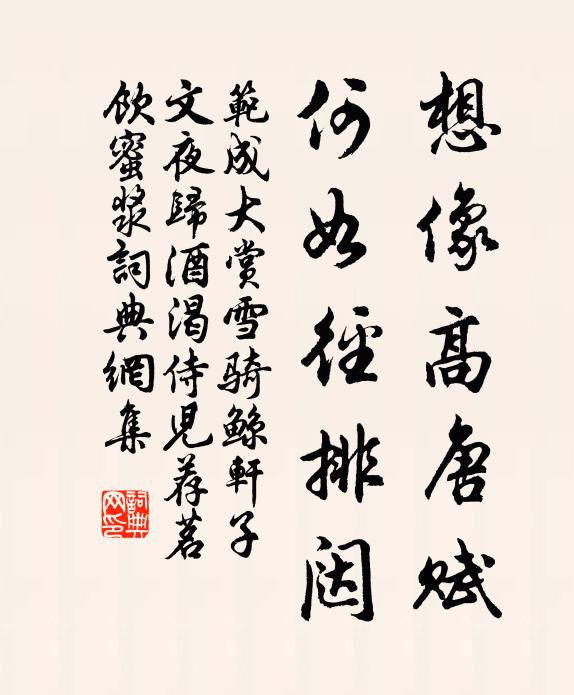 想像高唐賦
何如徑排闥
範成大賞雪騎鯨軒子
文夜歸酒渴侍兒荐茗
飲蜜漿詞典網集
詞典
网印